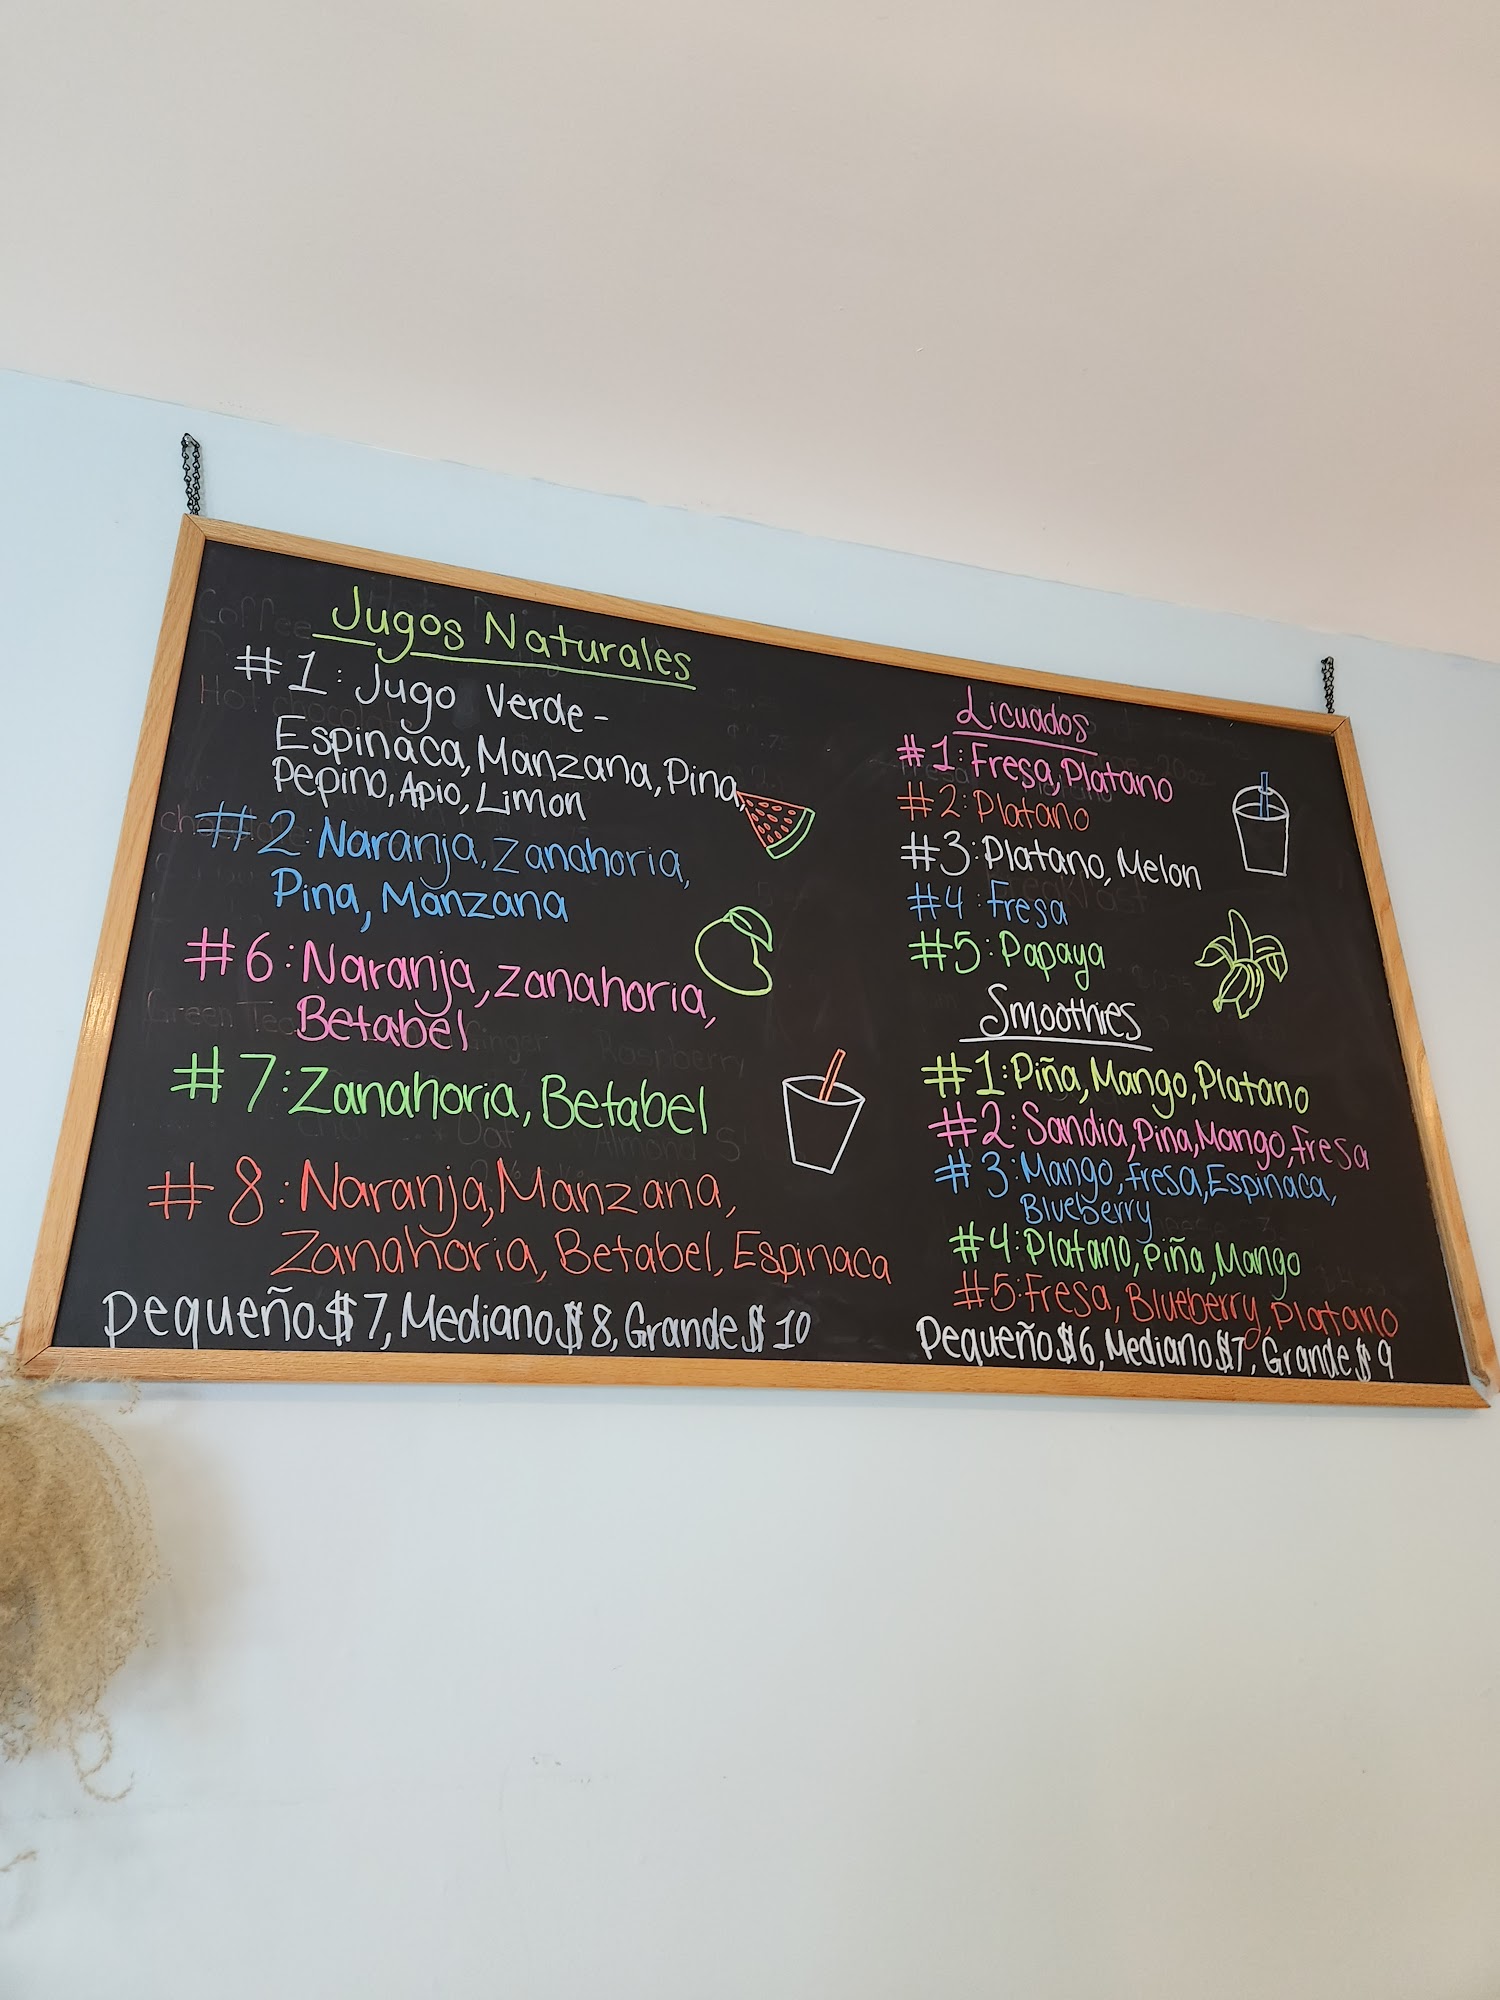 Jugos Naturales
#1: Jugo Verde -
Espinaca, Manzana, Pina,
Pepino, Apio, Limon
#2: Naranja, Zanahoria,
Pina, Manzana
#6: Naranja, zanahoria,
Betabel
#7: Zanahoria, Betabel
#8: Naranja, Manzana,
Zanahoria, Betabel, Espinaca
Pequeño $7, Mediano $8, Grande $10
Licuados
#1: Fresa, Platano
#2: Platano
#3: Platano, Melon
#4: Fresa
#5: Papaya
Smoothies
#1: Piña, Mango, Platano
#2: Sandia, Pina, Mango, Fresa
#3: Mango, Fresa, Espinaca,
Blueberry
#4: Platano, Piña, Mango
#5: Fresa, Blueberry, Platano
Pequeño $6, Mediano $7, Grande $9